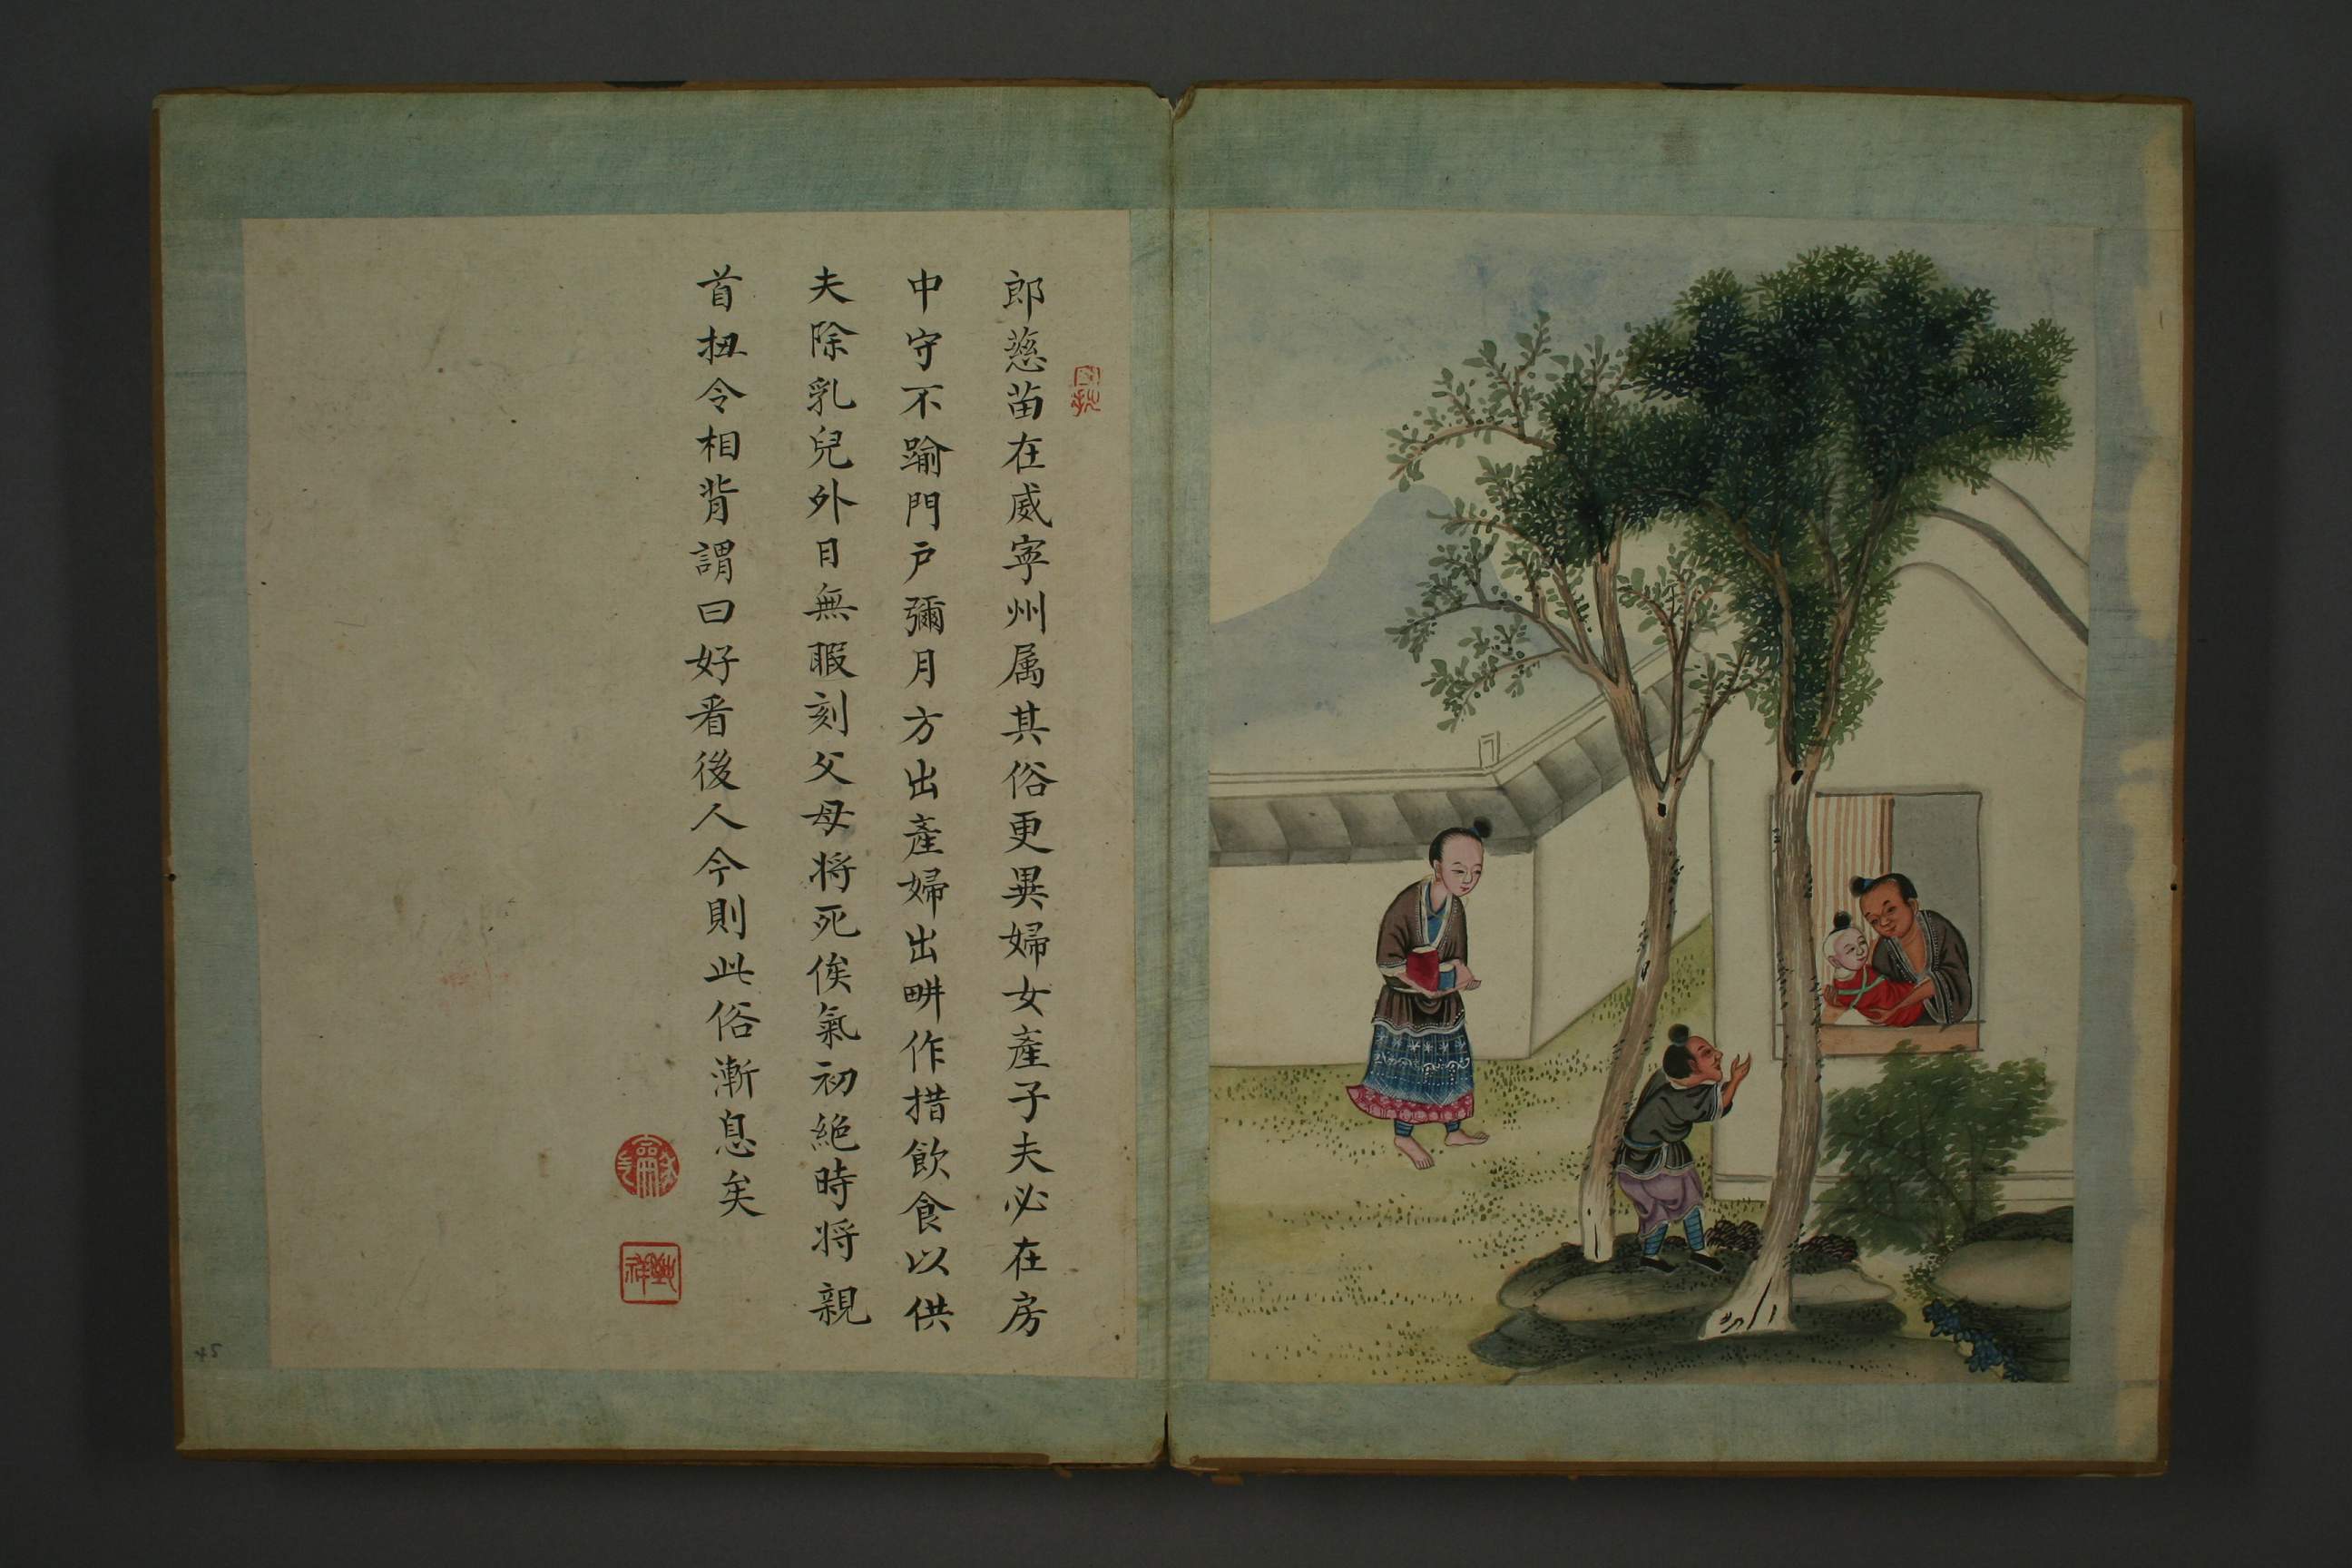 郎慈苗在威寧州属其俗更異婦女產子夫必在房
中守不踰門戶彌月方出產婦出畊作措飲食以供
夫除乳兒外日無暇刻父母将死俟氣初絕時将親
首扭令相背謂曰好看後人今則此俗漸息矣